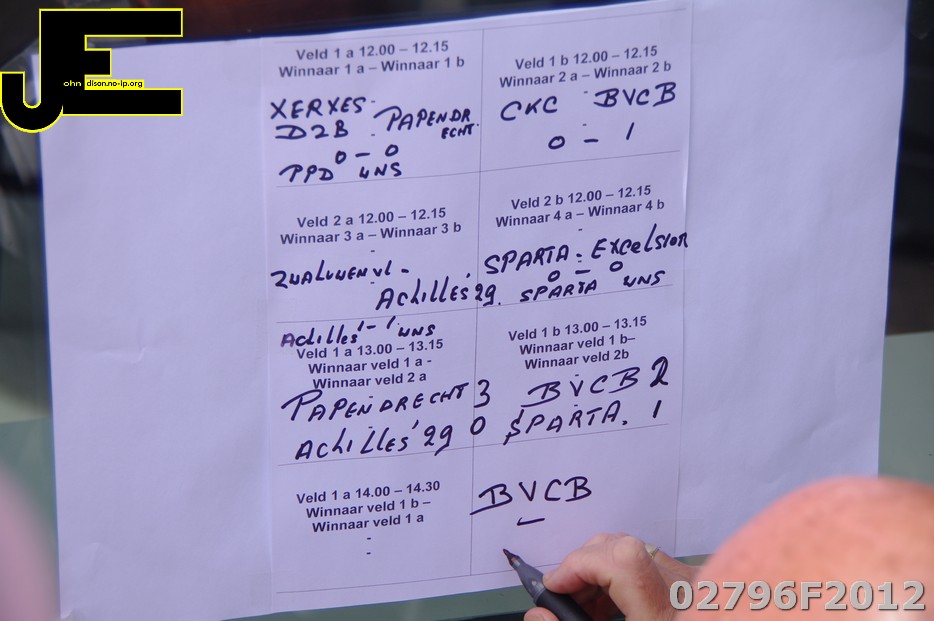 John dison.no-ip.org
Veld 1 a 12.00 – 12.15
Winnaar 1 a – Winnaar 1 b
XERXES -
DZB - PAPENDR
ECHT.
0 – 0
PPD WNS
Veld 1 b 12.00 – 12.15
Winnaar 2 a – Winnaar 2 b
-
CKC BVCB
0 – 1
Veld 2 a 12.00 – 12.15
Winnaar 3 a – Winnaar 3 b
-
ZWALUWEN VL -
ACHILLES'29.
1 – 1
ACHILLES' WNS
Veld 2 b 12.00 – 12.15
Winnaar 4 a – Winnaar 4 b
-
SPARTA - EXCELSIOR
0 – 0
SPARTA WNS
Veld 1 a 13.00 – 13.15
Winnaar veld 1 a -
Winnaar veld 2 a
PAPENDRECHT 3
ACHILLES'29 0
Veld 1 b 13.00 – 13.15
Winnaar veld 1 b–
Winnaar veld 2b
BVCB 2
SPARTA. 1
Veld 1 a 14.00 – 14.30
Winnaar veld 1 b –
Winnaar veld 1 a
-
-
BVCB
–
02796F2012